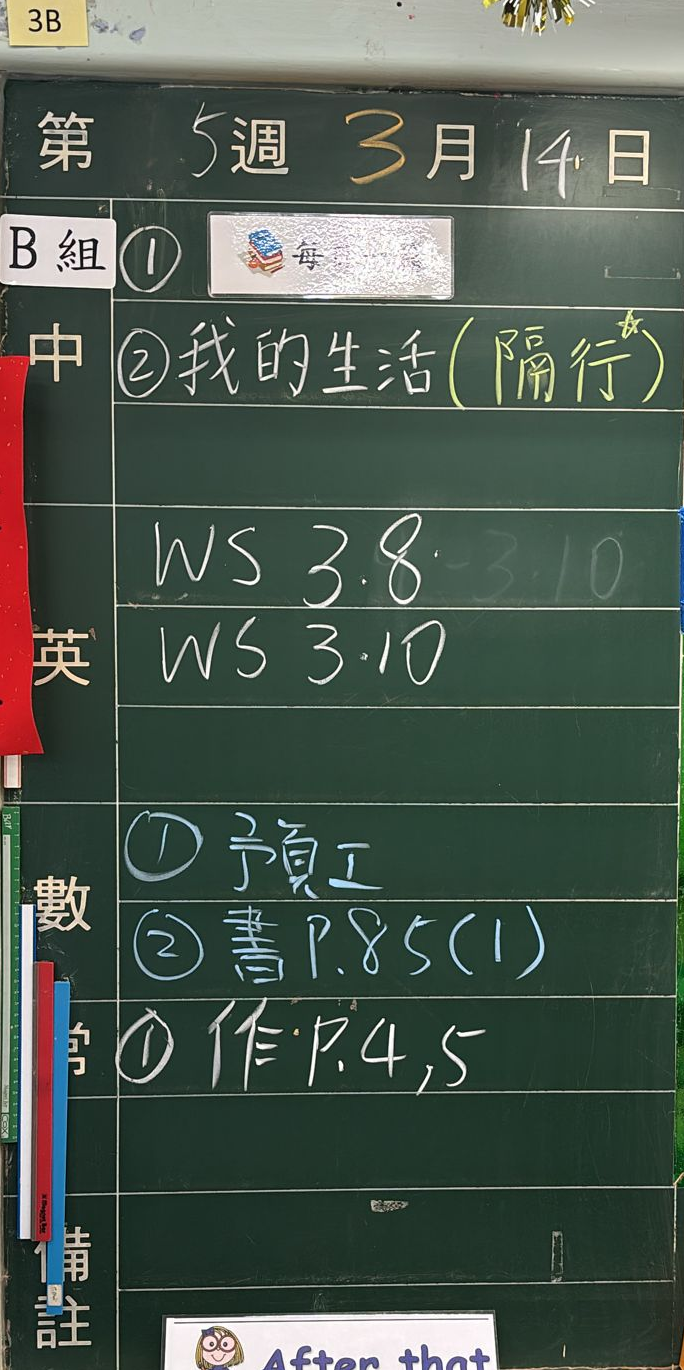 3B
第 5 週 3 月 14 日
B 組 ① 每
中 ② 我的生活 (隔行☆)
WS 3.8 - 3.10
英 WS 3.10
① 預工
數 ② 書 P.85 (1)
常 ① 作 P.4,5
備註
After that